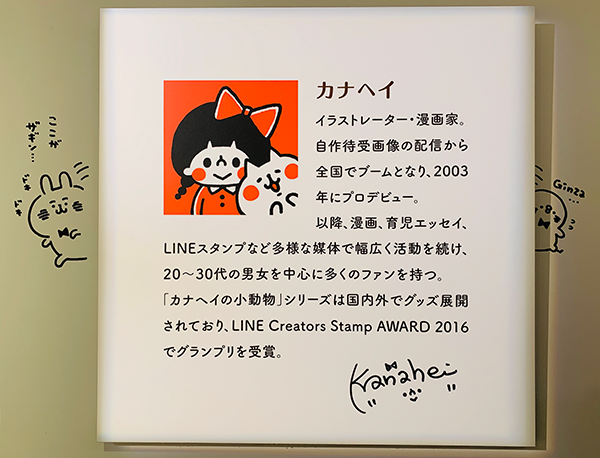 カナヘイ
イラストレーター・漫画家。
自作待受画像の配信から
全国でブームとなり、2003
年にプロデビュー。
以降、漫画、育児エッセイ、
LINEスタンプなど多様な媒体で幅広く活動を続け、
20～30代の男女を中心に多くのファンを持つ。
「カナヘイの小動物」シリーズは国内外でグッズ展開
されており、LINE Creators Stamp AWARD 2016
でグランプリを受賞。
Kanahei
ここが
ザギン…
ドキ
ドキ
Ginza…